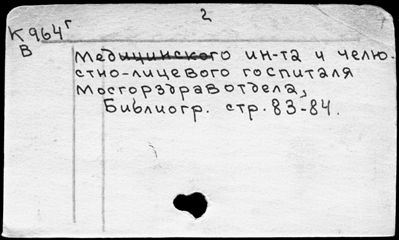 2
К964г
В
Медицинского ин-та и челю-
стно-лицевого госпиталя
Мосгорздравотдела,
Библиогр. стр. 83-84.